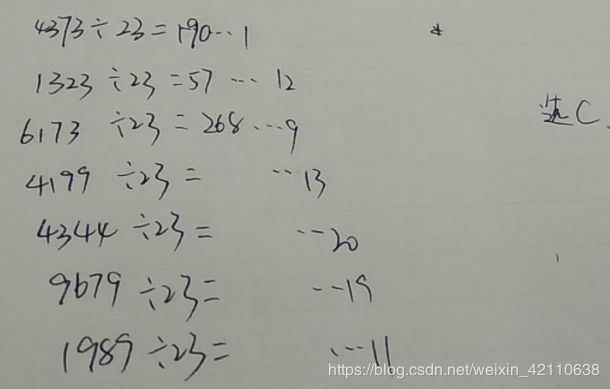 4373÷23=190…1
1323÷23=57…12
选C.
6173÷23=268…9
4199÷23= …13
4344÷23= …20
9679÷23= …19
1989÷23= …11
https://blog.csdn.net/weixin_42110638